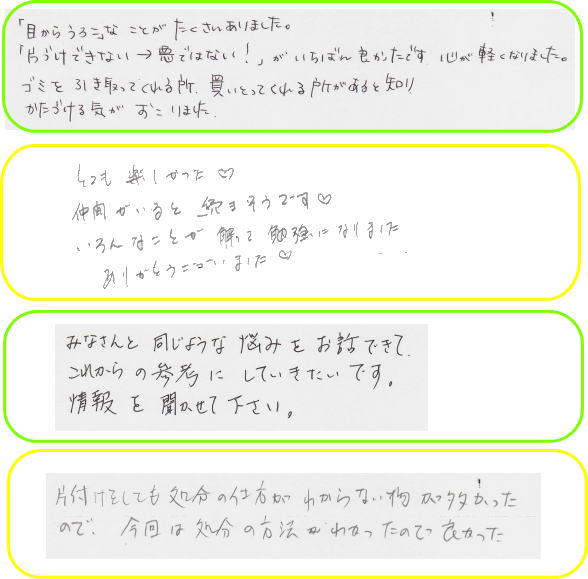 「目からうろこ」な ことが たくさんありました。
「片づけできない→悪ではない!」が いちばん 良かったです 心が 軽くなりました。
ゴミを 引き取ってくれる所、買いとってくれる所があると知り
かたづける気が おこりました.
とても 楽しかった♡
仲間がいると 続きそうです♡
いろんなことが 解って 勉強になりました
ありがとうございました♡
みなさんと 同じような 悩みを お話できて、
これからの参考に していきたいです。
情報を 聞かせて下さい。
片付けをしても 処分の仕方が わからない物が多かった
ので、今回は処分の方法がわかったので 良かった